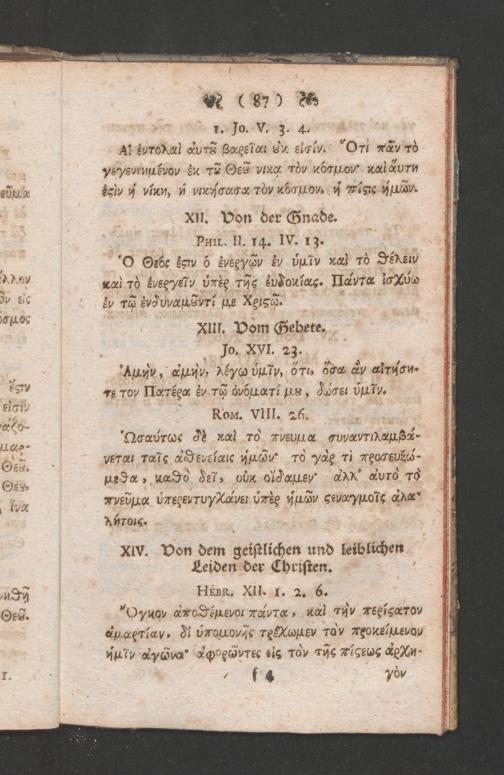 ( 87 )
1. Jo. V. 3. 4.
Αἱ ἐντολαὶ αὐτȣ͂ βαρεῖαι ȣ̓κ εἰσίν. Ὅτι πᾶν τὸ
γεγεννημένον ἐκ τȣ͂ Θεȣ͂ νικᾳ τὸν κόσμον· καὶ ἅυτη
ἐϛὶν ἡ νίκη, ἡ νικήσασα τὸν κόσμον, ἡ πίϛις ἡμῶν.
XII. Von der Gnade.
Phil. II. 14. IV. 13.
Ὁ Θεός ἐϛιν ὁ ἐνεργῶν ἐν ὑμῖν καὶ τὸ θέλειν
καὶ τὸ ἐνεργεῖν ὑπὲρ τῆς ἐυδοκίας. Πάντα ἰσχύω
ἐν τῷ ἐνδυναμȣ͂ντί με Χριϛῷ.
XIII. Vom Gebete.
Jo. XVI. 23.
Ἀμὴν, ἀμὴν, λέγω ὑμῖν, ὅτι, ὅσα ἂν αἰτήση-
τε τον Πατέρα ἐν τῷ ὀνόματί μȣ, δώσει ὑμῖν.
Rom. VIII. 26.
Ὡσαύτως δὲ καὶ τὸ πνευμα συναντιλαμβά-
νεται ταῖς ἀθενείαις ἡμῶν· τὸ γὰρ τὶ προσευξώ-
μεθα, καθὸ δεῖ, οὐκ οἴδαμεν· ἀλλ᾽ αυτὸ τὸ
πνεῦμα ὑπερεντυγχάνει ὑπὲρ ἡμῶν ϛεναγμοῖς ἀλα-
λήτοις.
XIV. Von dem geistlichen und leiblichen
Leiden der Christen.
Hebr. XII. 1. 2. 6.
Ὄγκον ἀποθέμενοι πάντα, καὶ τὴν περίϛατον
ἁμαρτίαν, δἰ ὑπομονῆς τρέχωμεν τὸν προκείμενον
ἡμῖν ἀγῶνα· ἀφορῶντες εἰς τὸν τῆς πίϛεως ἀρχη-
f 4 γὸν